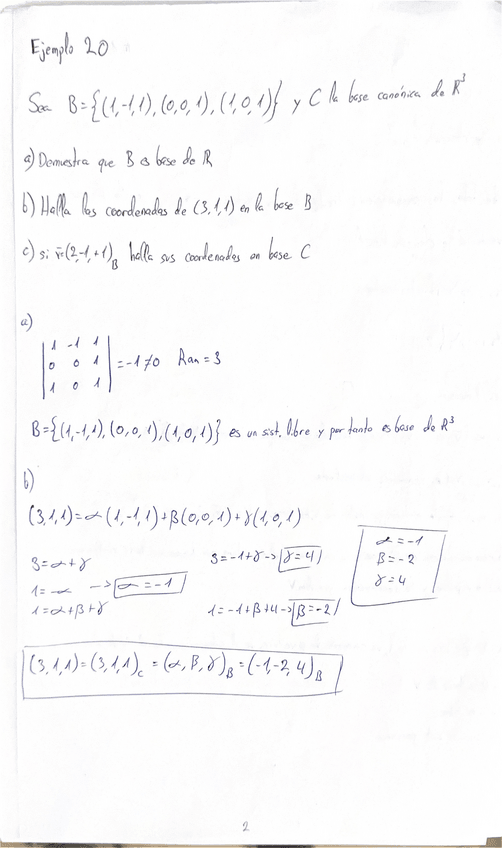 Ejemplo 20
Sea B={(1,-1,1),(0,0,1),(1,0,1)} y C la base canónica de R³
a) Demuestra que B es base de R
b) Halla las coordenadas de (3,1,1) en la base B
c) si v̄=(2,-1,+1)_B halla sus coordenadas en base C
a)
| 1 -1 1 |
| 0 0 1 | = -1≠0 Ran=3
| 1 0 1 |
B={(1,-1,1),(0,0,1),(1,0,1)} es un sist. libre y por tanto es base de R³
b)
(3,1,1)=α(1,-1,1)+β(0,0,1)+γ(1,0,1)
3=α+γ
1=-α -> α=-1
1=α+β+γ
3=-1+γ -> γ=4
1=-1+β+4 -> β=-2
α=-1
β=-2
γ=4
(3,1,1)=(3,1,1)_C=(α,β,γ)_B=(-1,-2,4)_B
2